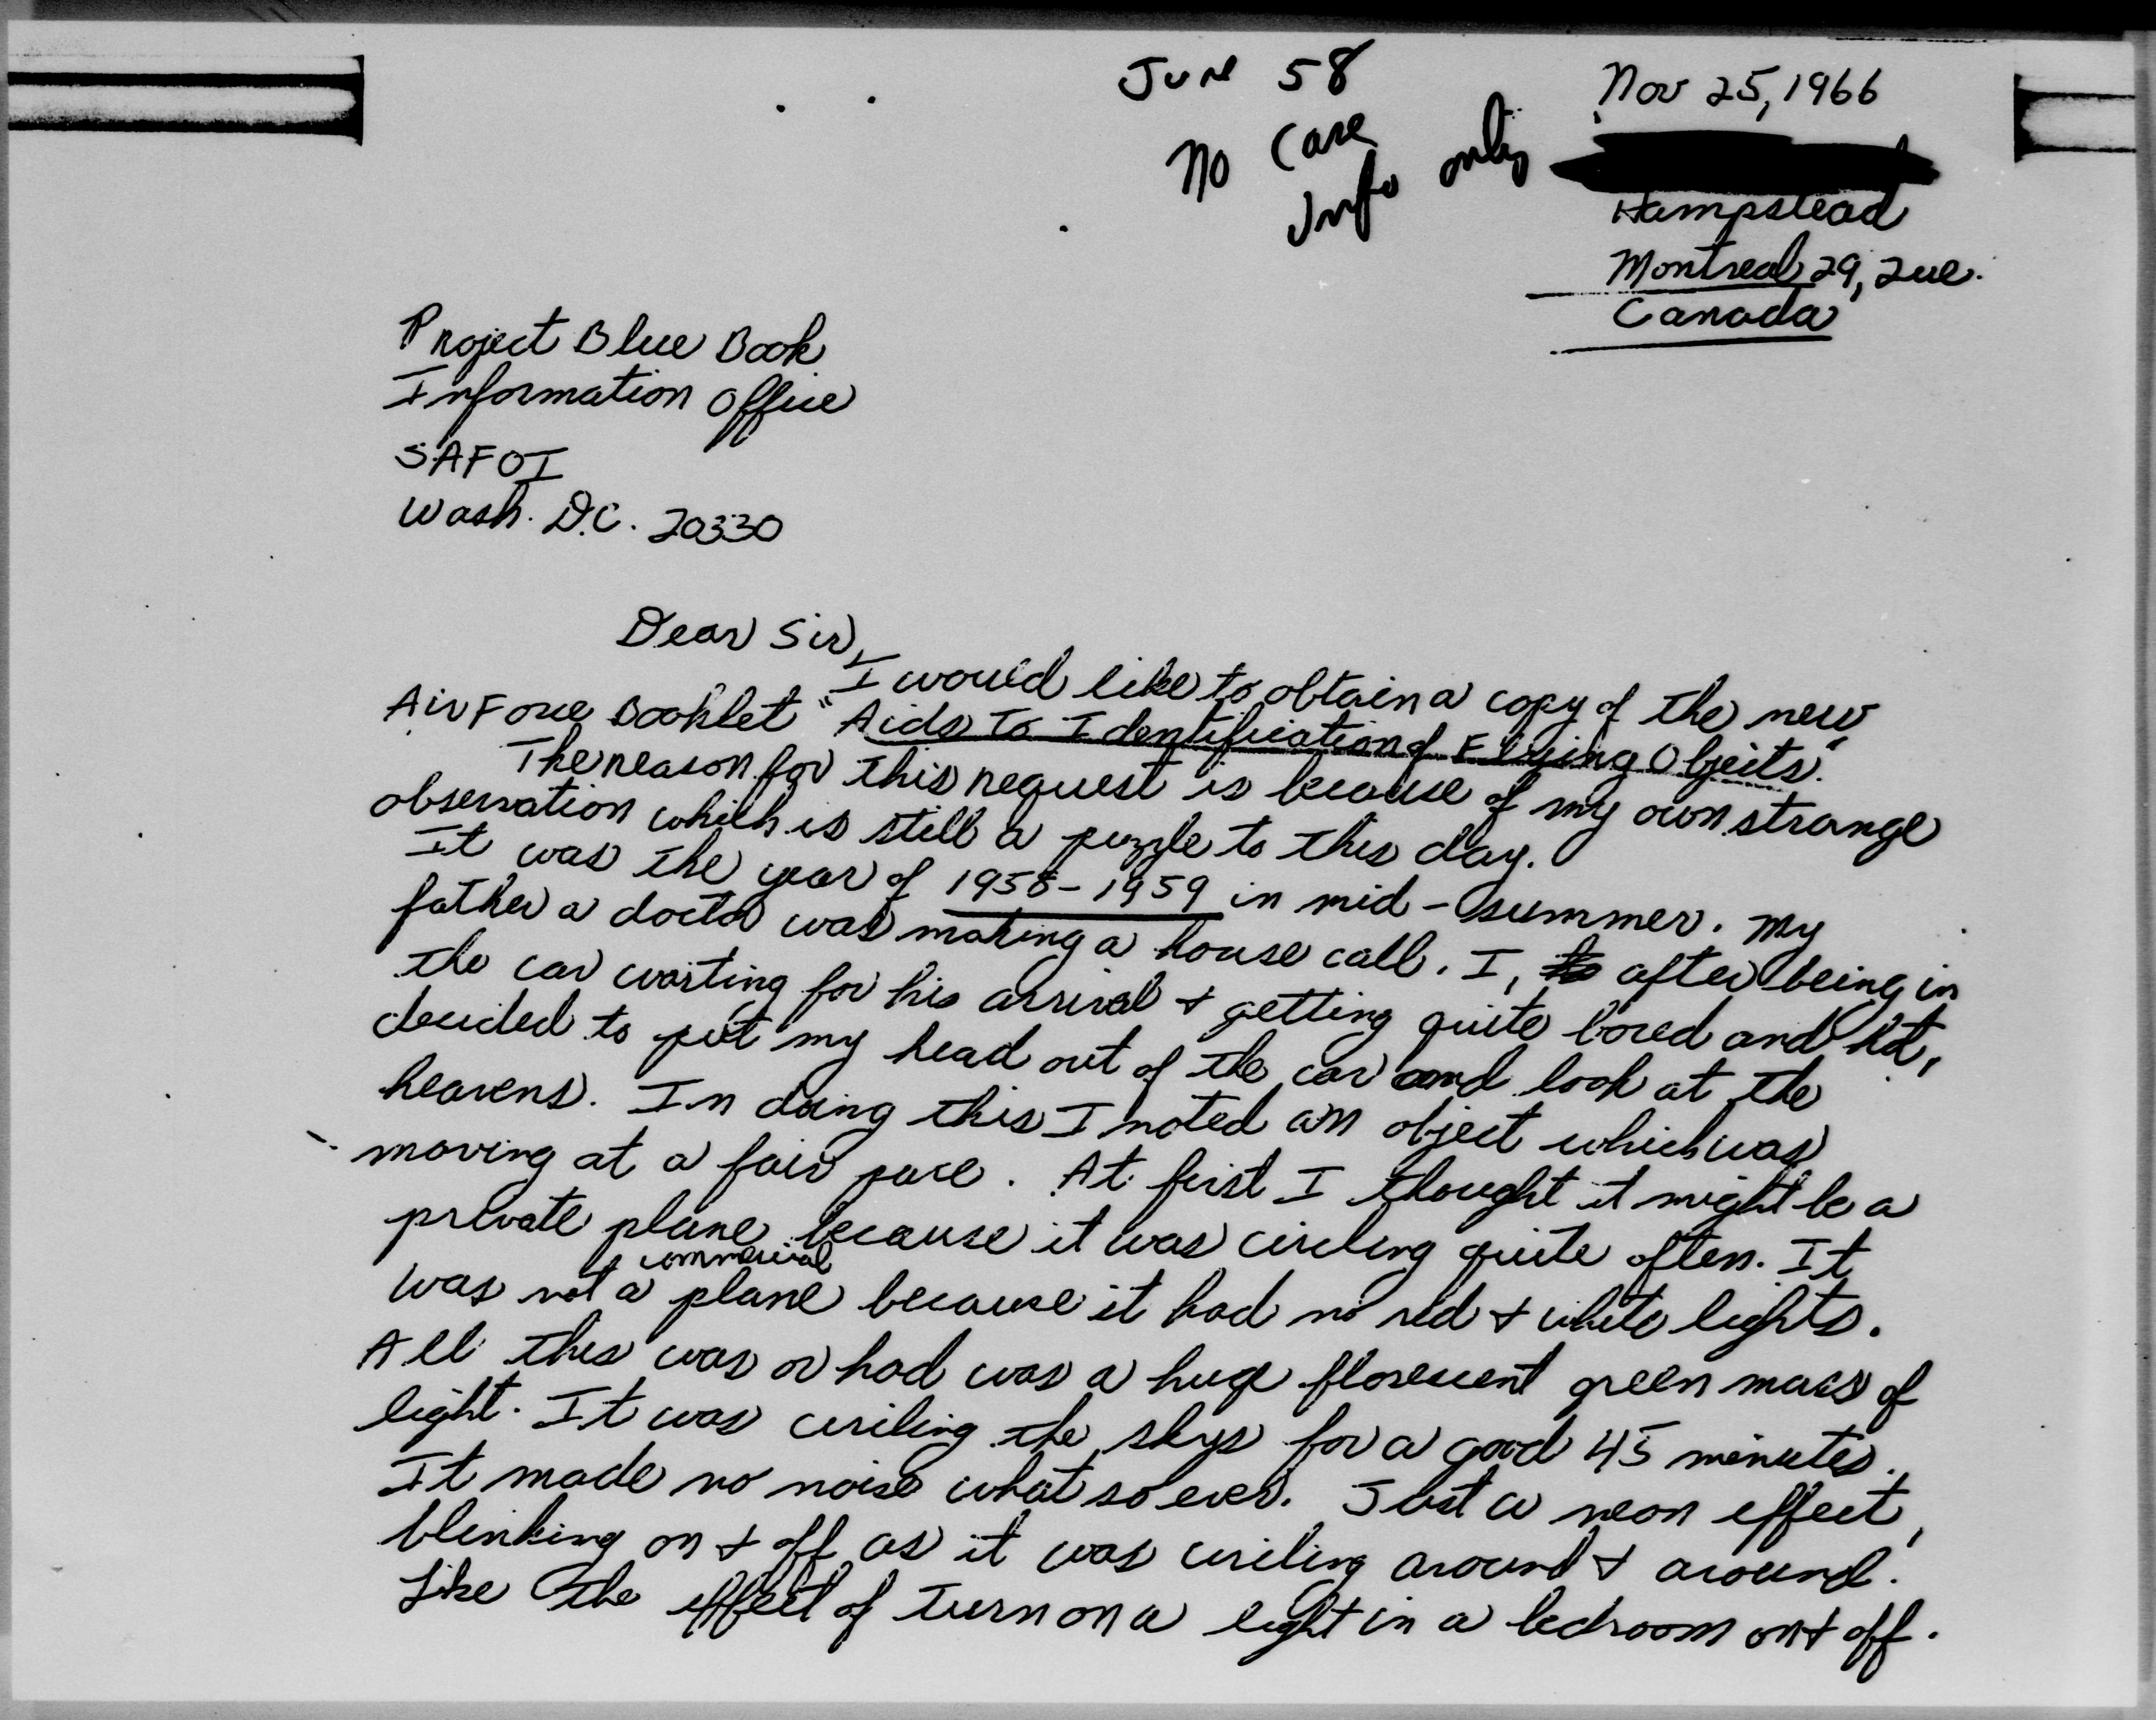 June 58
No Case
Info only
Nov 25, 1966
Hampstead
Montreal 29, Que.
Canada
Project Blue Book
Information Office
SAFOI
Wash. D.C. 20330
Dear Sir,
I would like to obtain a copy of the new
Air Force Booklet "Aids To Identification of Flying Objects".
The reason for this request is because of my own strange
observation which is still a puzzle to this day.
It was the year of 1958-1959 in mid-summer. My
father a doctor was making a house call. I, after being in
the car waiting for his arrival + getting quite bored and hot,
decided to put my head out of the car and look at the
heavens. In doing this I noted an object which was
moving at a fair pace. At first I thought it might be a
private plane because it was circling quite often. It
was not a commercial plane because it had no red + white lights.
All this was or had was a huge florescent green mass of
light. It was circling the skys for a good 45 minutes.
It made no noise what so ever. Just a neon effect,
blinking on + off as it was circling around + around.
Like the effect of turn on a light in a bedroom on + off.